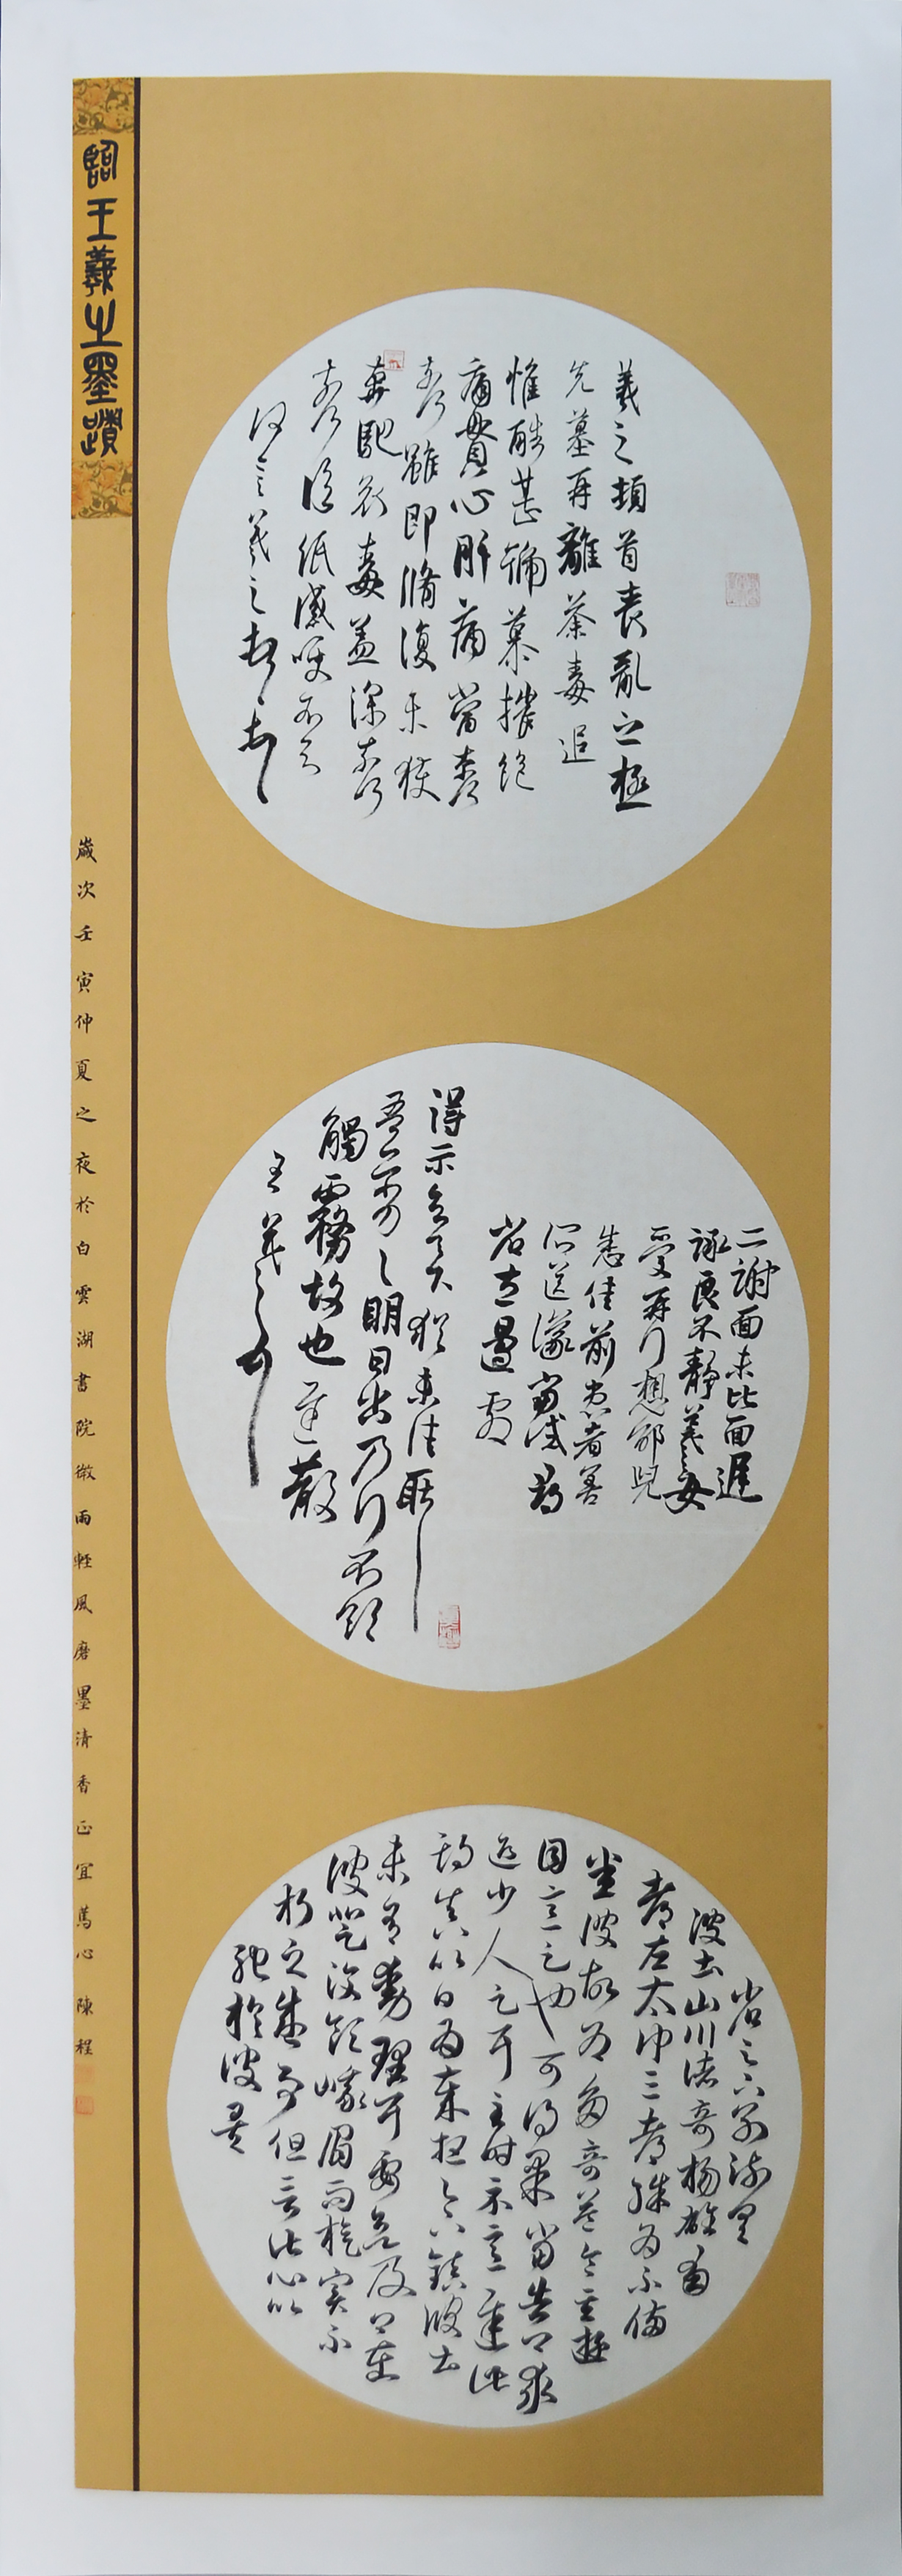 羲之頓首喪亂之極
先墓再離荼毒追
惟酷甚號慕摧絕
痛貫心肝痛當奈何
奈何雖即脩復未獲
奔馳哀毒益深奈何
奈何臨紙感哽不知
何言羲之頓首頓首
二謝面未比面遲
詠良不靜羲之女
愛再拜想邰兒
悉佳前患者善
所送議當試尋
省左邊劇
得示知足下猶未佳耿耿
吾亦劣劣明日出乃行不欲
觸霧故也遲散
王羲之頓首
省足下別疏具
彼土山川諸奇楊雄蜀
都左太沖三都殊為不備
悉彼故為多奇益令其遊
目意足也可得果當告卿求
迎少人足耳至時示意遲此
期真以日為歲想足下鎮彼土
未有動理耳要欲及卿在
彼登汶領峨眉而旋實不
朽之盛事但言此心以
馳於彼矣
臨王羲之墨蹟
歲次壬寅仲夏之夜於白雲湖書院微雨輕風磨墨清香正宜寫心 陳程